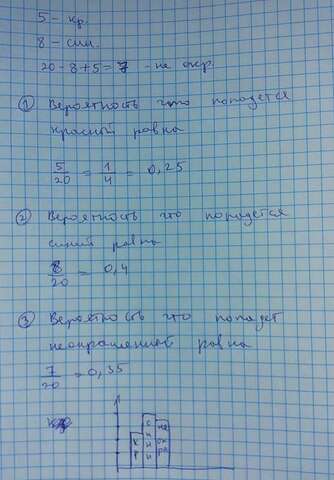 5 - кр.
8 - син.
20-8+5=7 - не окр.
① Вероятность что попадется
красный равна
5/20 = 1/4 = 0,25
② Вероятность что попадется
синий равна
8/20 = 0,4
③ Вероятность что попадет
неокрашенный равна
7/20 = 0,35
кр
синий
не окр